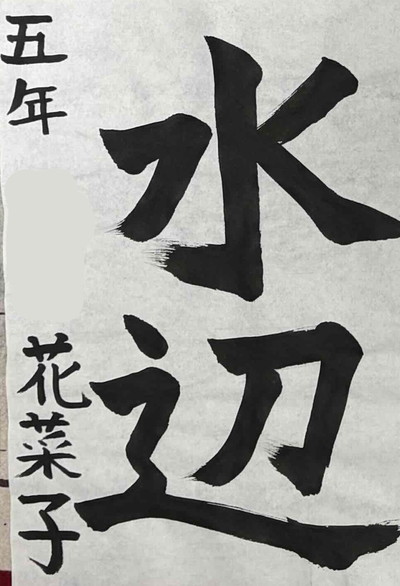 水辺
五年
花菜子